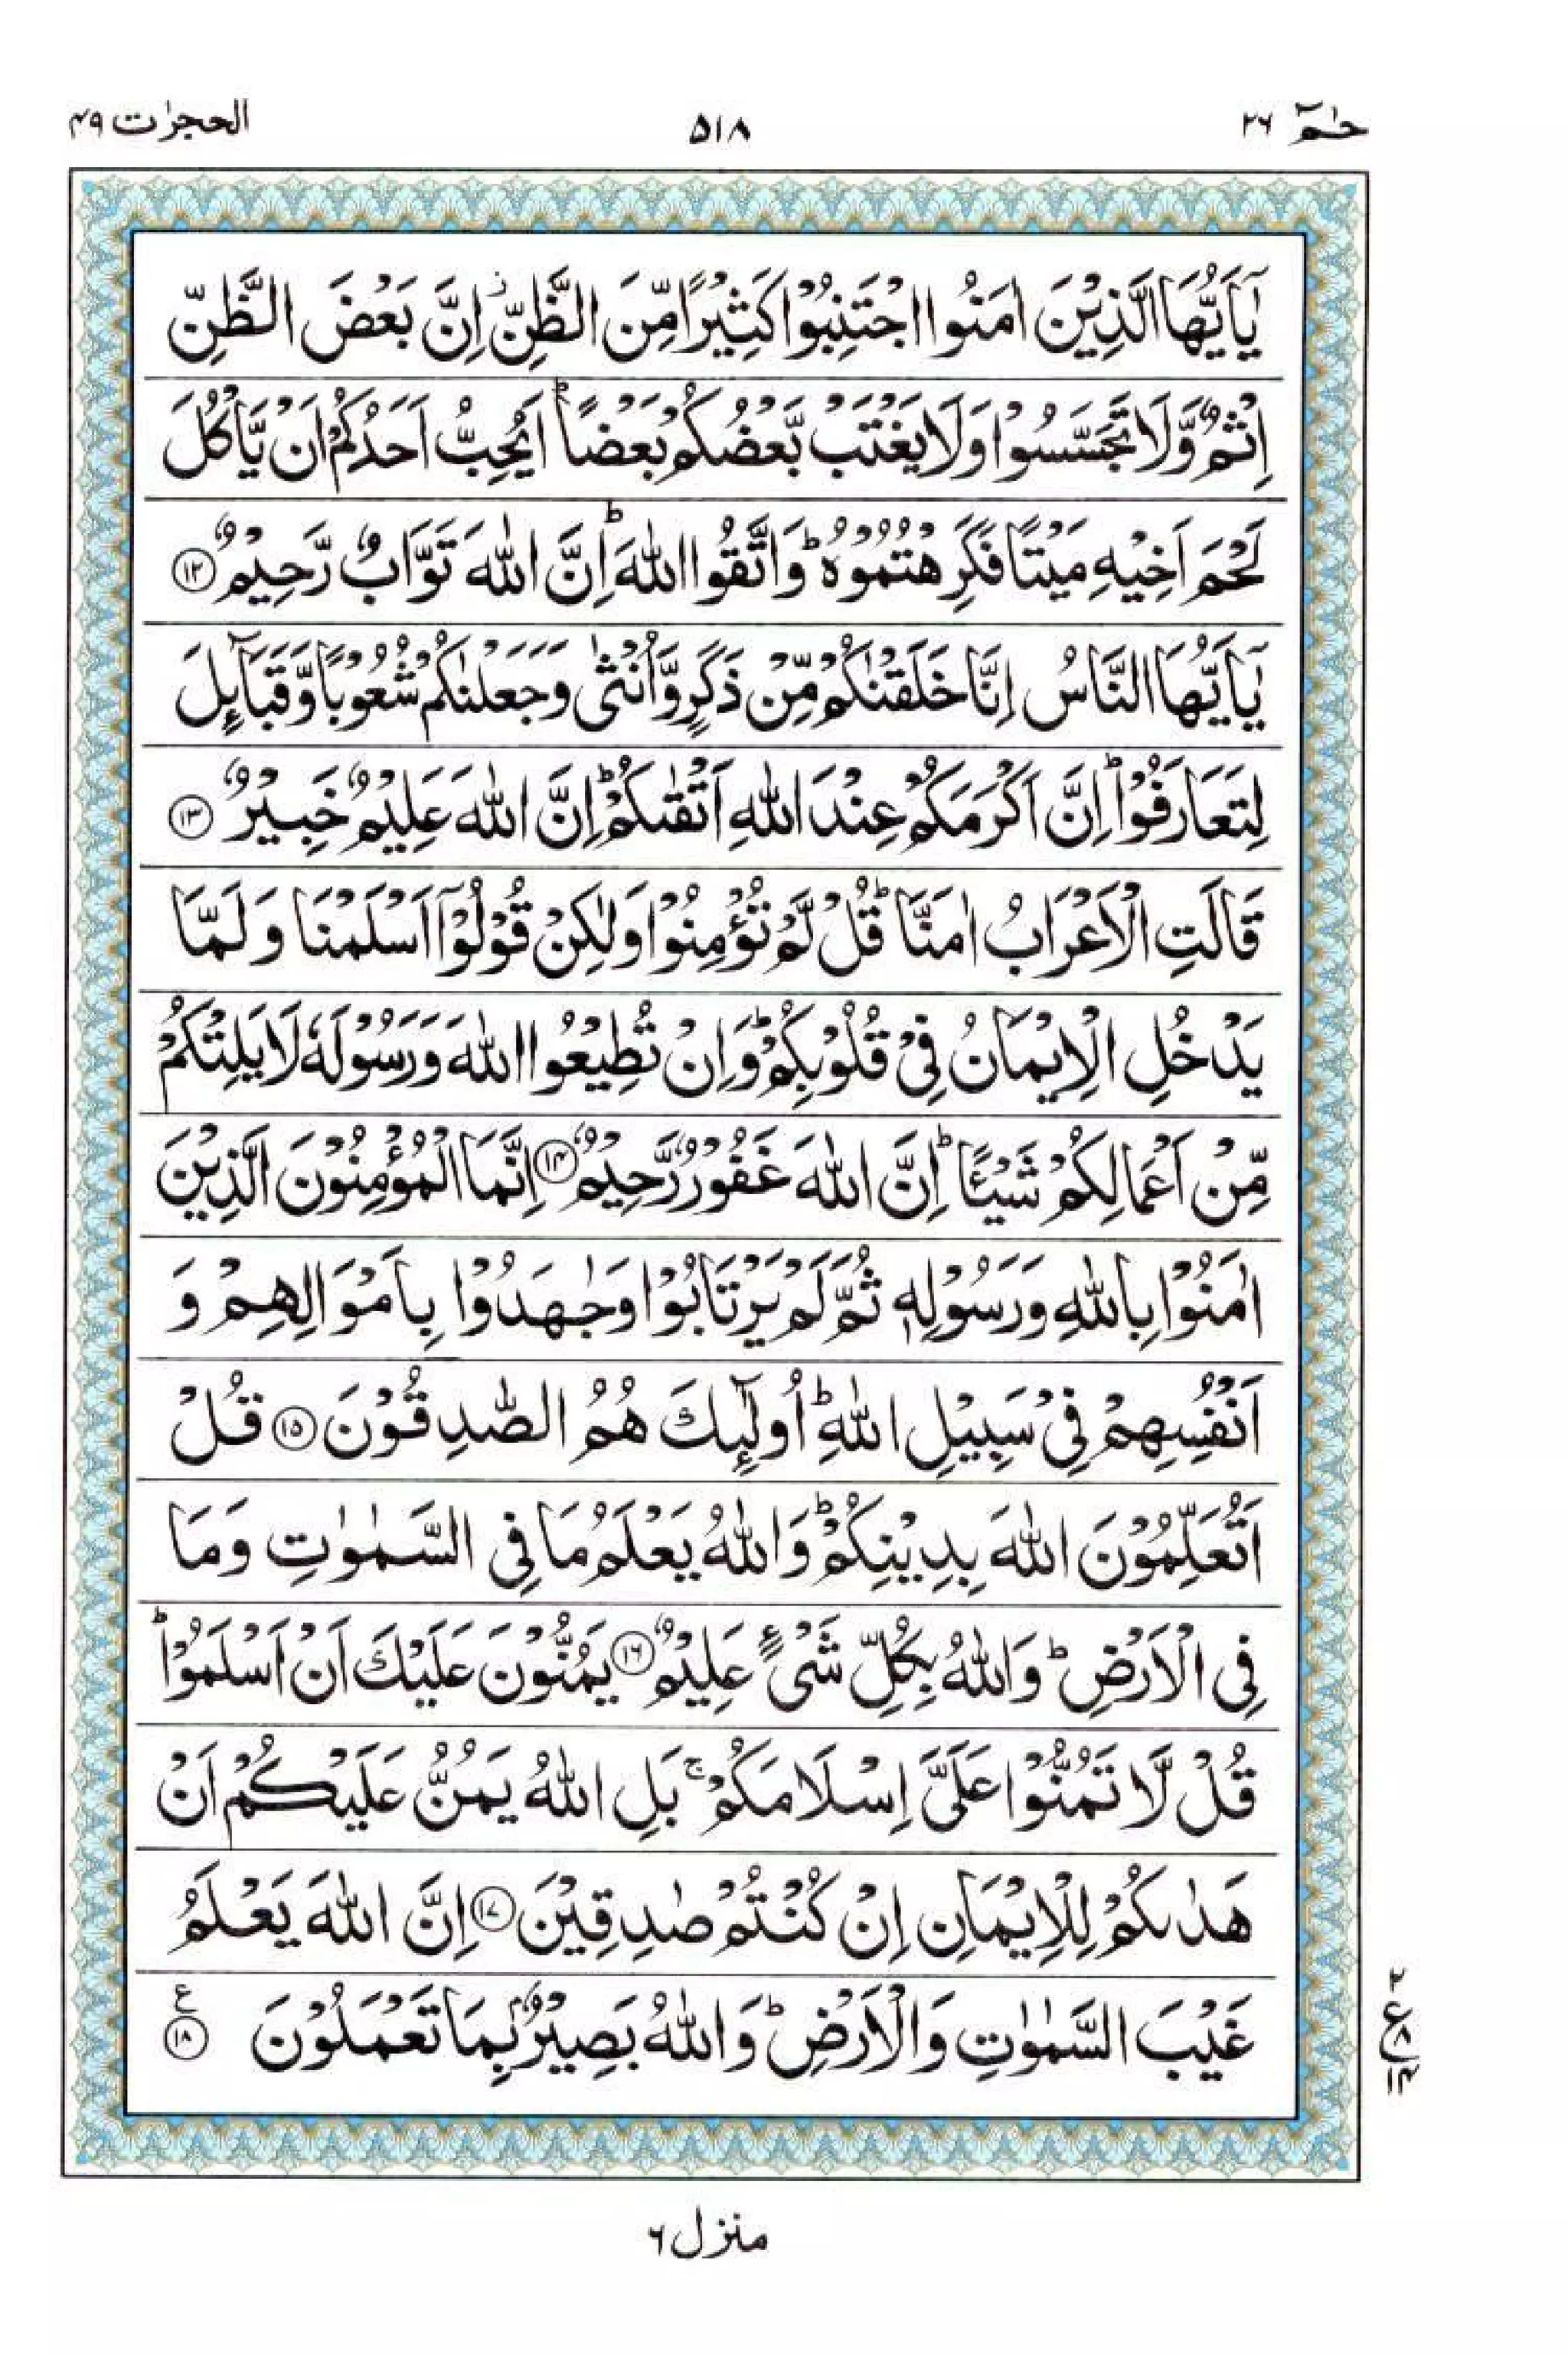 حٰمٓ ٢٦
٥١٨
الحجرٰت ٤٩
يٰۤاَيُّهَا الَّذِيْنَ اٰمَنُوا اجْتَنِبُوْا كَثِيْرًا مِّنَ الظَّنِّ ز اِنَّ بَعْضَ الظَّنِّ
اِثْمٌ وَّلَا تَجَسَّسُوْا وَلَا يَغْتَبْ بَّعْضُكُمْ بَعْضًا ؕ اَيُحِبُّ اَحَدُكُمْ اَنْ يَّاْكُلَ
لَحْمَ اَخِيْهِ مَيْتًا فَكَرِهْتُمُوْهُ ؕ وَاتَّقُوا اللّٰهَ ؕ اِنَّ اللّٰهَ تَوَّابٌ رَّحِيْمٌ ١٢
يٰۤاَيُّهَا النَّاسُ اِنَّا خَلَقْنٰكُمْ مِّنْ ذَكَرٍ وَّاُنْثٰى وَجَعَلْنٰكُمْ شُعُوْبًا وَّقَبَآئِلَ
لِتَعَارَفُوْا ؕ اِنَّ اَكْرَمَكُمْ عِنْدَ اللّٰهِ اَتْقٰىكُمْ ؕ اِنَّ اللّٰهَ عَلِيْمٌ خَبِيْرٌ ١٣
قَالَتِ الْاَعْرَابُ اٰمَنَّا ؕ قُلْ لَّمْ تُؤْمِنُوْا وَلٰكِنْ قُوْلُوْۤا اَسْلَمْنَا وَلَمَّا
يَدْخُلِ الْاِيْمَانُ فِيْ قُلُوْبِكُمْ ؕ وَاِنْ تُطِيْعُوا اللّٰهَ وَرَسُوْلَهٗ لَا يَلِتْكُمْ
مِّنْ اَعْمَالِكُمْ شَيْـًٔا ؕ اِنَّ اللّٰهَ غَفُوْرٌ رَّحِيْمٌ ١٤ اِنَّمَا الْمُؤْمِنُوْنَ الَّذِيْنَ
اٰمَنُوْا بِاللّٰهِ وَرَسُوْلِهٖ ثُمَّ لَمْ يَرْتَابُوْا وَجٰهَدُوْا بِاَمْوَالِهِمْ وَ
اَنْفُسِهِمْ فِيْ سَبِيْلِ اللّٰهِ ؕ اُولٰٓئِكَ هُمُ الصّٰدِقُوْنَ ١٥ قُلْ
اَتُعَلِّمُوْنَ اللّٰهَ بِدِيْنِكُمْ ؕ وَاللّٰهُ يَعْلَمُ مَا فِي السَّمٰوٰتِ وَمَا
فِي الْاَرْضِ ؕ وَاللّٰهُ بِكُلِّ شَيْءٍ عَلِيْمٌ ١٦ يَمُنُّوْنَ عَلَيْكَ اَنْ اَسْلَمُوْا ؕ
قُلْ لَّا تَمُنُّوْا عَلَيَّ اِسْلَامَكُمْ ۚ بَلِ اللّٰهُ يَمُنُّ عَلَيْكُمْ اَنْ
هَدٰىكُمْ لِلْاِيْمَانِ اِنْ كُنْتُمْ صٰدِقِيْنَ ١٧ اِنَّ اللّٰهَ يَعْلَمُ
غَيْبَ السَّمٰوٰتِ وَالْاَرْضِ ؕ وَاللّٰهُ بَصِيْرٌ بِمَا تَعْمَلُوْنَ ١٨ ع
٢
ع ٨
١٤
منزل ٦